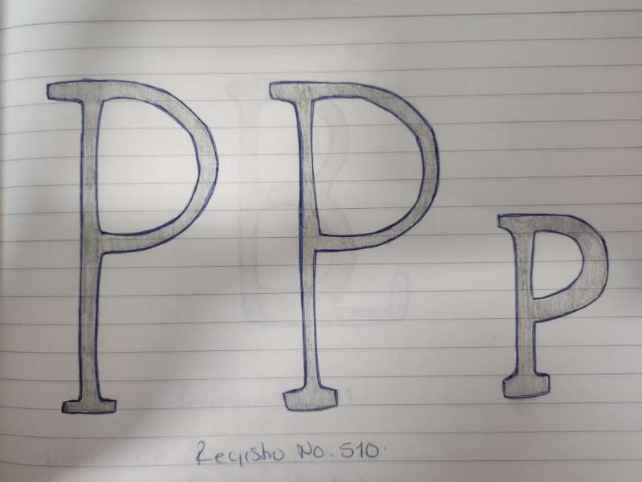 P P P
Registro No. 510.